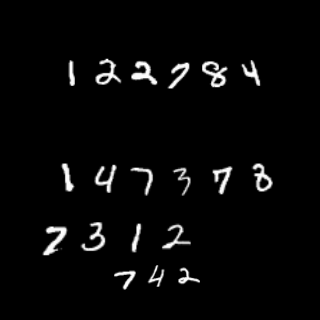 122784
147378
7312
742